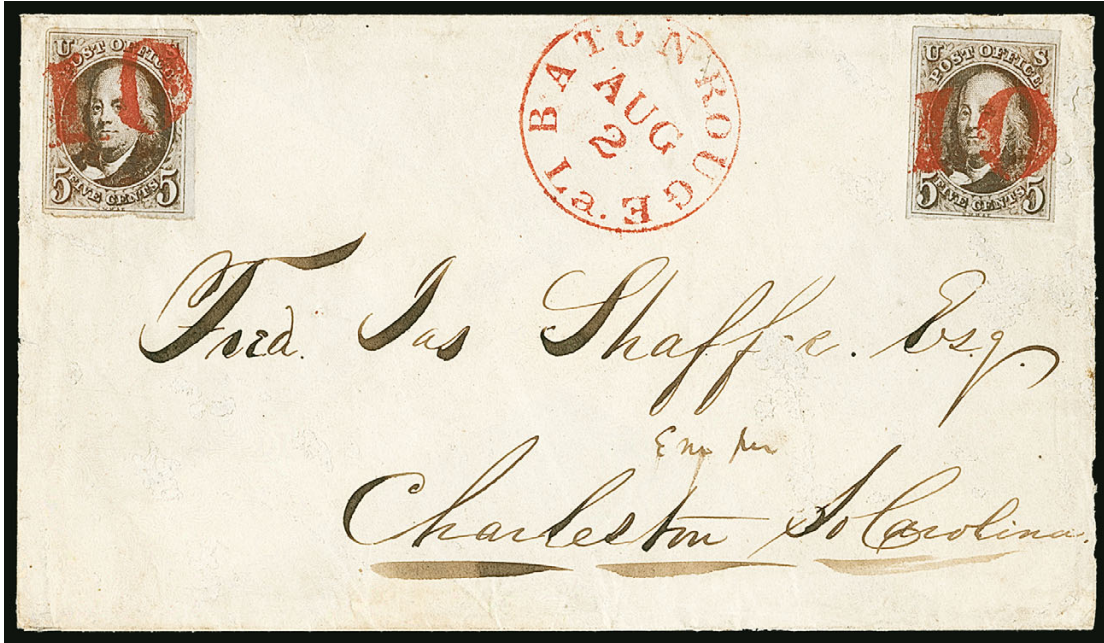 U S
POST OFFICE
10
5 FIVE CENTS 5
BATON-ROUGE Lª
AUG
2
U S
POST OFFICE
10
5 FIVE CENTS 5
Fred. Jas Shaff-r. Esq.
Charleston So Carolina.